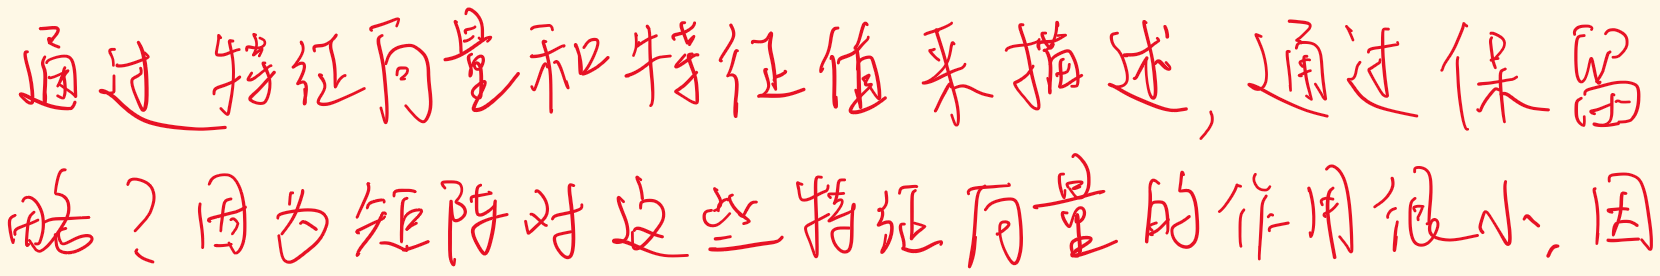 通过特征向量和特征值来描述,通过保留
略?因为矩阵对这些特征向量的作用很小,因